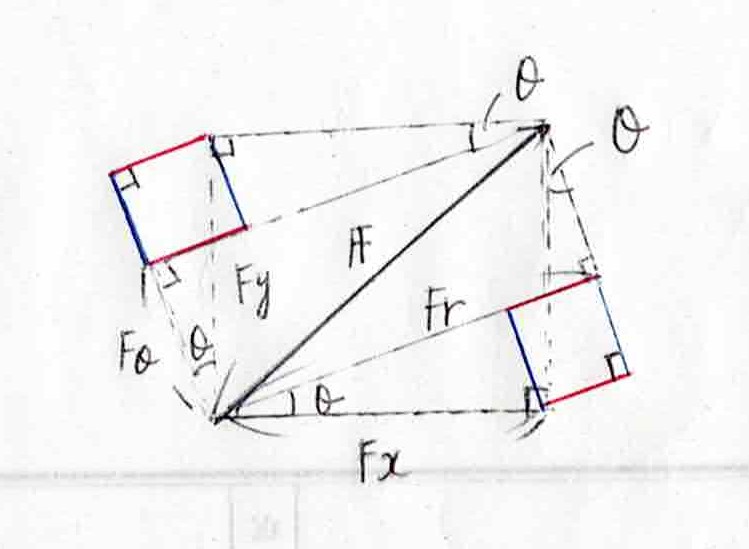 θ
θ
F
Fy
Fr
Fθ
θ
θ
Fx